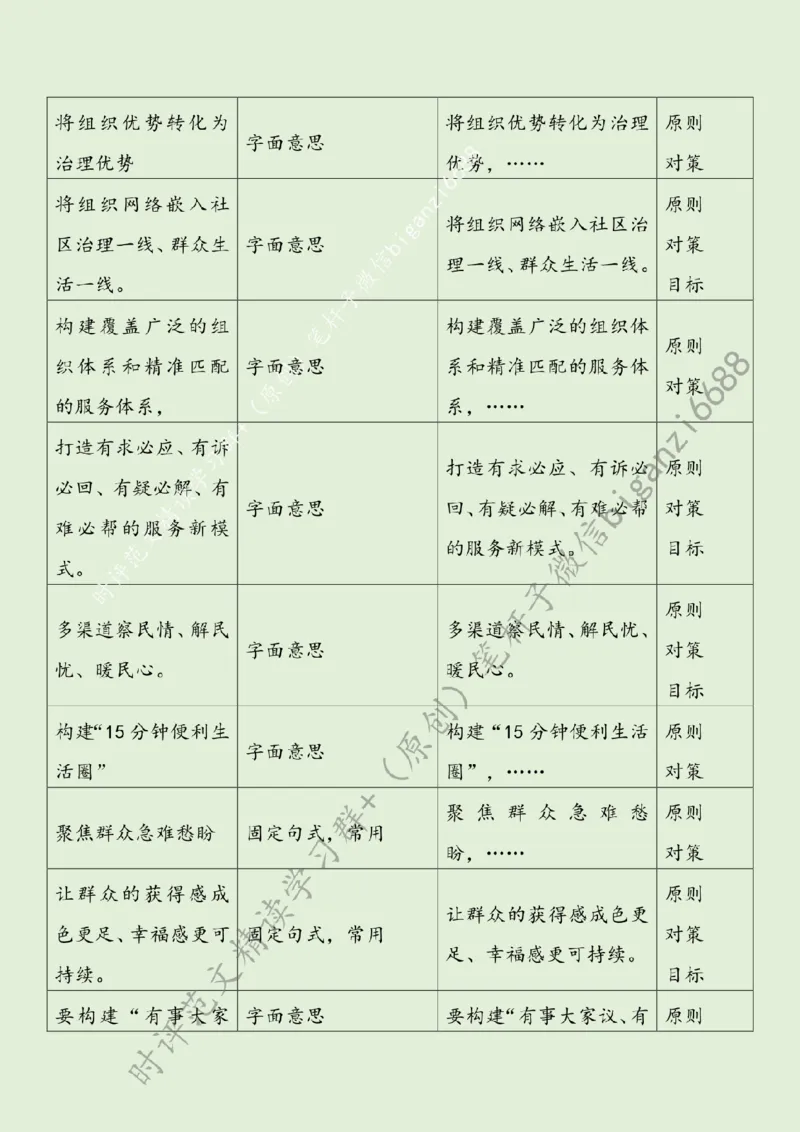 将组织优势转化为
治理优势
字面意思
将组织优势转化为治理
优势，……
原则
对策
将组织网络嵌入社
区治理一线、群众生
活一线。
字面意思
将组织网络嵌入社区治
理一线、群众生活一线。
原则
对策
目标
构建覆盖广泛的组
织体系和精准匹配
的服务体系，
字面意思
构建覆盖广泛的组织体
系和精准匹配的服务体
系，……
原则
对策
打造有求必应、有诉
必回、有疑必解、有
难必帮的服务新模
式。
字面意思
打造有求必应、有诉必
回、有疑必解、有难必帮
的服务新模式。
原则
对策
目标
多渠道察民情、解民
忧、暖民心。
字面意思
多渠道察民情、解民忧、
暖民心。
原则
对策
目标
构建“15 分钟便利生
活圈”
字面意思
构建“15 分钟便利生活
圈”，……
原则
对策
聚焦群众急难愁盼
固定句式，常用
聚焦群众急难愁
盼，……
原则
对策
让群众的获得感成
色更足、幸福感更可
持续。
固定句式，常用
让群众的获得感成色更
足、幸福感更可持续。
原则
对策
目标
要构建“有事大家
字面意思
要构建“有事大家议、有
原则
时评范文精读学习群+（原创）笔杆子微信biganzi6688
时评范文精读学习群+（原创）笔杆子微信biganzi6688